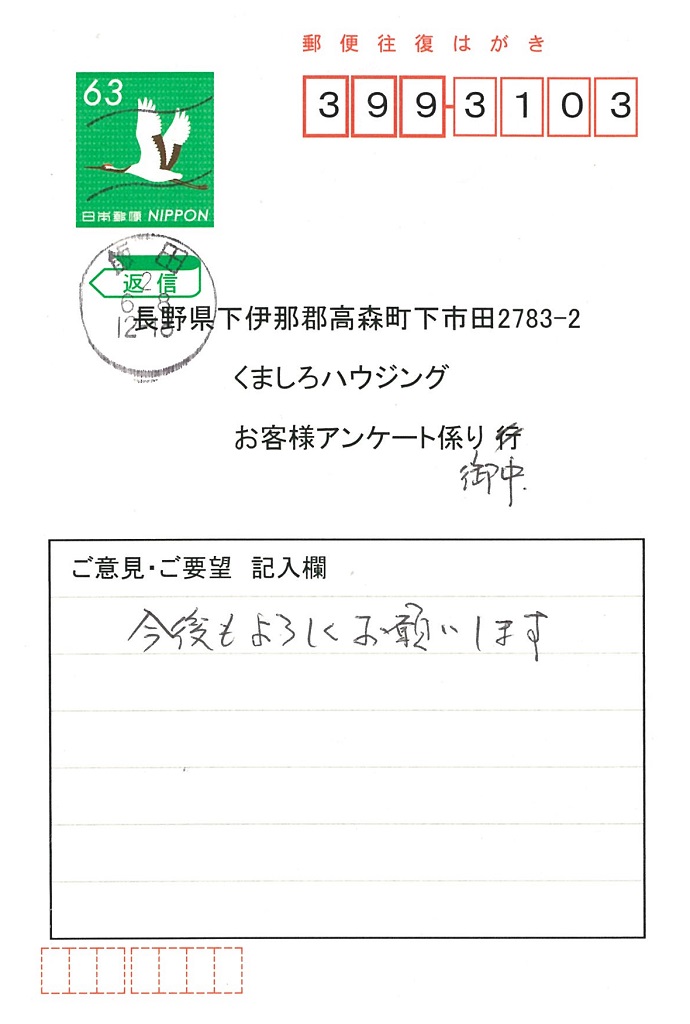 郵便往復はがき
63
399-3103
日本郵便 NIPPON
飯田
返信
2
6 8
長野県下伊那郡高森町下市田2783-2
くましろハウジング
お客様アンケート係り 行
御中.
ご意見・ご要望 記入欄
今後もよろしくお願いします